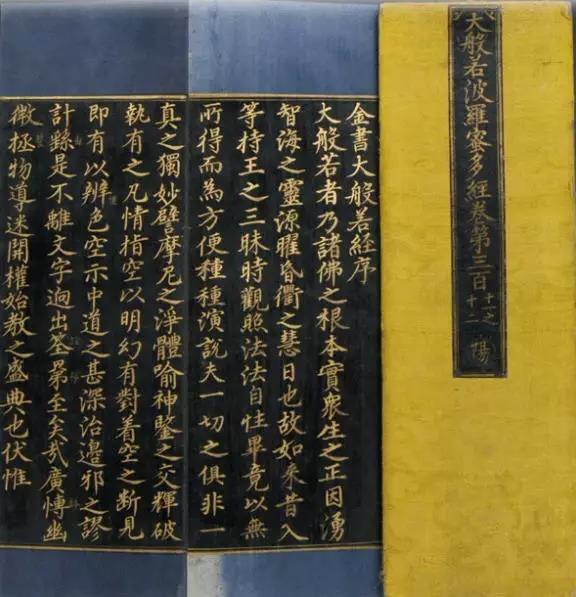 大般若波羅蜜多經卷第三百
十二
陽
金書大般若經序
大般若者乃諸佛之根本實衆生之正因湧
智海之靈源曜昏衢之慧日也故如来昔入
等持王之三昧時觀照法法自性畢竟以無
所得而為方便種種演說夫一切之俱非一
真之獨妙譬摩尼之浮體喻神鑒之交輝破
執有之凡情指空以明幻有對着空之斷見
即有以辨色空示中道之甚深治邊邪之謬
計繇是不離文字迥出筌罤至矣哉廣博幽
微拯物導迷開權始教之盛典也伏惟